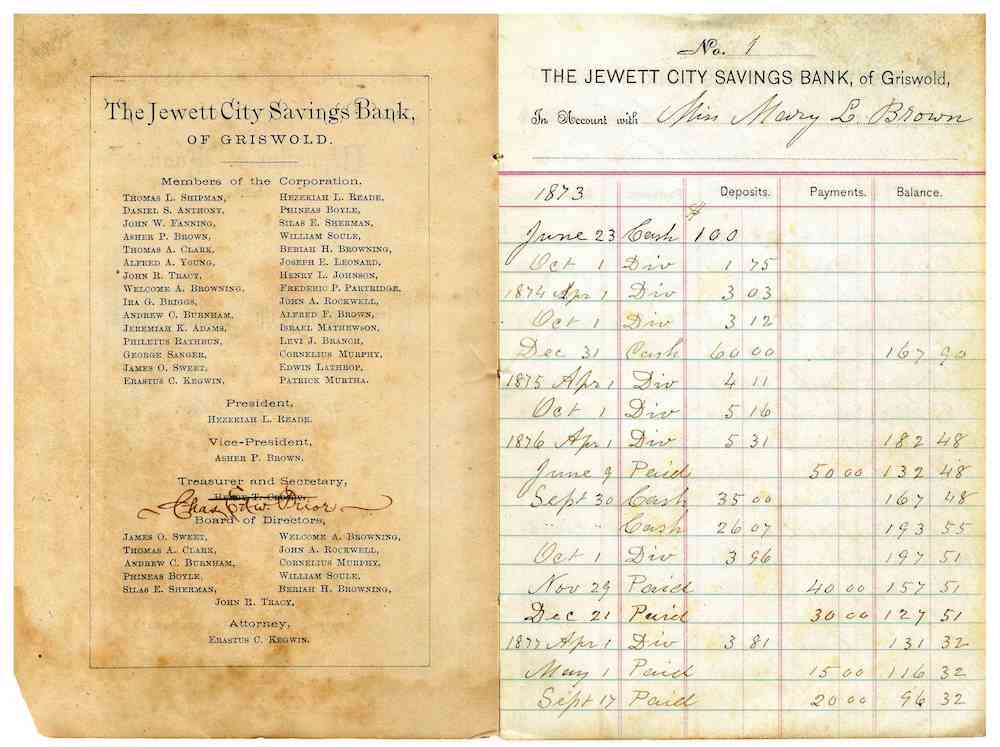 The Jewett City Savings Bank,
OF GRISWOLD.
Members of the Corporation.
THOMAS L. SHIPMAN, HEZEKIAH L. READE,
DANIEL S. ANTHONY, PHINEAS BOYLE,
JOHN W. FANNING, SILAS E. SHERMAN,
ASHER P. BROWN, WILLIAM SOULE,
THOMAS A. CLARK, BERIAH H. BROWNING,
ALFRED A. YOUNG, JOSEPH E. LEONARD,
JOHN R. TRACY, HENRY L. JOHNSON,
WELCOME A. BROWNING, FREDERIC P. PARTRIDGE,
IRA G. BRIGGS, JOHN A. ROCKWELL,
ANDREW C. BURNHAM, ALFRED F. BROWN,
JEREMIAH K. ADAMS, ISRAEL MATHEWSON,
PHILETUS RATHBUN, LEVI J. BRANCH,
GEORGE SANGER, CORNELIUS MURPHY,
JAMES O. SWEET, EDWIN LATHROP,
ERASTUS C. KEGWIN, PATRICK MURTHA.
President,
HEZEKIAH L. READE.
Vice-President,
ASHER P. BROWN.
Treasurer and Secretary,
Chas Edw. Prior
Board of Directors,
JAMES O. SWEET, WELCOME A. BROWNING,
THOMAS A. CLARK, JOHN A. ROCKWELL,
ANDREW C. BURNHAM, CORNELIUS MURPHY,
PHINEAS BOYLE, WILLIAM SOULE,
SILAS E. SHERMAN, BERIAH H. BROWNING,
JOHN R. TRACY.
Attorney,
ERASTUS C. KEGWIN.
No. 1
THE JEWETT CITY SAVINGS BANK, of Griswold,
In Account with Miss Mary L. Brown
1873 Deposits. Payments. Balance.
$
June 23 Cash 100
Oct 1 Div 1 75
1874 Apr 1 Div 3 03
Oct 1 Div 3 12
Dec 31 Cash 60 00 167 90
1875 Apr 1 Div 4 11
Oct 1 Div 5 16
1876 Apr 1 Div 5 31 182 48
June 9 Paid 50 00 132 48
Sept 30 Cash 35 00 167 48
" " Cash 26 07 193 55
Oct 1 Div 3 96 197 51
Nov 29 Paid 40 00 157 51
Dec 21 Paid 30 00 127 51
1877 Apr 1 Div 3 81 131 32
May 1 Paid 15 00 116 32
Sept 17 Paid 20 00 96 32